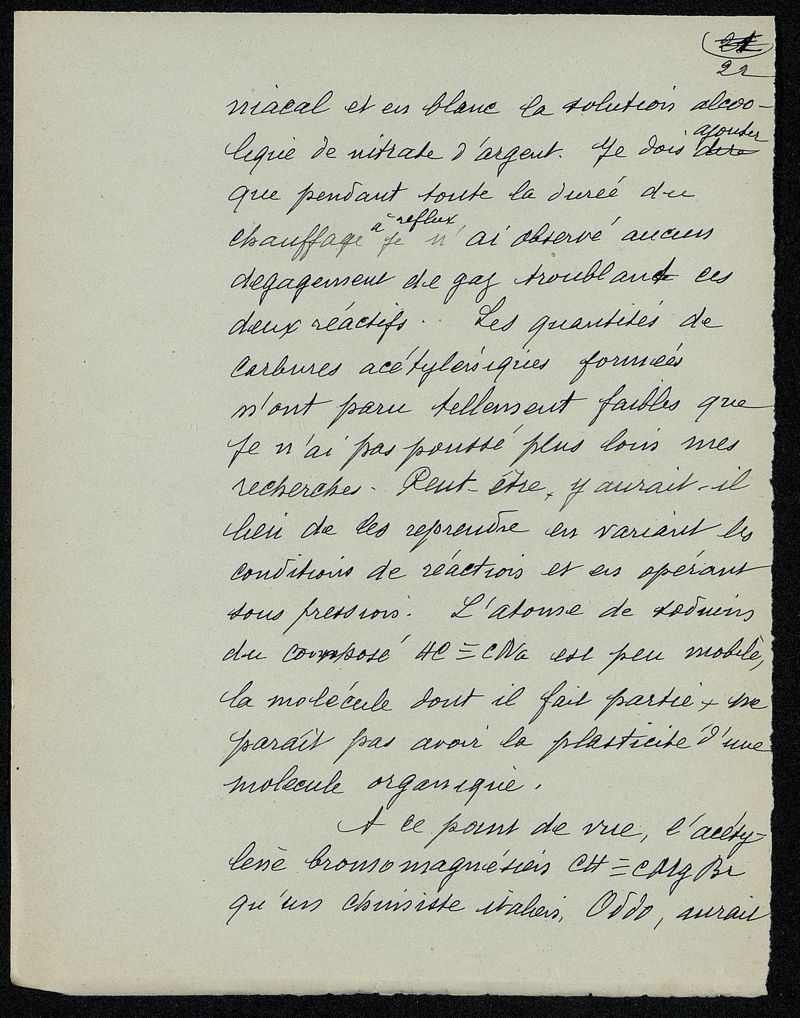 21
22
niacal et en blanc la solution alcoo-
lique de nitrate d'argent. Je dois dire ajouter
que pendant toute la durée du
chauffage à reflux je n'ai observé aucun
degagement de gaz troublant ces
deux réactifs. Les quantités de
carbures acétyléniques formées
m'ont paru tellement faibles que
je n'ai pas poussé plus loin mes
recherches. Peut-être, y aurait-il
lieu de les reprendre en variant les
conditions de réaction et en opérant
sous pression. L'atome de sodium
du composé HC≡CNa est peu mobile,
la molécule dont il fait partie ne
paraît pas avoir la plasticité d'une
molecule organique.
A ce point de vue, l'acéty-
lène bromomagnésien CH≡CMgBr
qu'un chimiste italien, Oddo, aurait